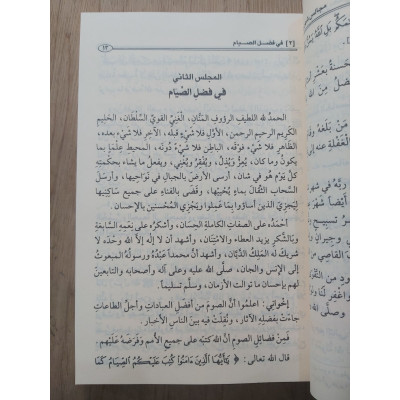 [٢] في فضل الصيام ١٣
المجلس الثاني
في فضل الصِّيام
الحمدُ لله اللطيفِ الرؤوفِ المَنَّانِ، الغَنِيِّ القويِّ السُّلْطَان، الحَلِيمِ
الكَرِيم الرحيم الرحمن، الأوَّلِ فلا شَيْءَ قبلَه، الآخِرِ فلا شَيْءَ بعدَه،
الظاهرِ فلا شَيْءَ فوْقَه، الباطنِ فلا شَيْءَ دُونَه، المحيطِ عِلْمًا بما
يكونُ وما كان، يُعِزُّ وَيُذِلُّ، ويُفْقِرُ ويُغْنِي، ويفعلُ ما يشاء بحكمتِه
كلَّ يَوْمٍ هُو في شَان، أرسى الأرضَ بالجبالِ في نَوَاحِيها، وأرسَلَ
السَّحاب الثِّقالَ بماءٍ يُحْيِيْها، وقَضَى بالفناءِ على جميعِ سَاكِنِيها
لِيَجْزِيَ الذين أساؤوا بِمَا عَمِلُوا ويَجْزِيَ المُحْسنين بالإِحسان
أحْمَدُه على الصفاتِ الكاملةِ الحِسَان، وأشكرُه على نِعَمِهِ السَّابغةِ
وبِالشُّكرِ يزيد العطاء والامْتِنَان، وأشهد أنْ لا إِلهَ إلَّا الله وحْدَه لا
شريكَ لَهُ المَلِكُ الدَّيَّان، وأشهد أنَّ محمدًا عبدُهُ ورسولُهُ المبعوثُ
إلى الإِنس والجان، صلَّى الله عليه وعلى آله وأصحابِه والتابعينَ
لهم بإحسانٍ ما توالت الأزمان، وسلَّم تسليمًا.
إخْواني: اعلمُوا أنَّ الصومَ من أفضَلِ العباداتِ وأجلِّ الطاعاتِ
جاءَتْ بفضلِهِ الآثار، ونُقِلَتْ فيه بينَ الناسِ الأَخبار.
فَمِنْ فضائِلِ الصومِ أنَّ اللهَ كتبَه على جميعِ الأُمم وَفَرَضَهُ عَلَيْهم.
قال الله تعالى: ﴿ يَٰٓأَيُّهَا ٱلَّذِينَ ءَامَنُوا۟ كُتِبَ عَلَيْكُمُ ٱلصِّيَامُ كَمَا